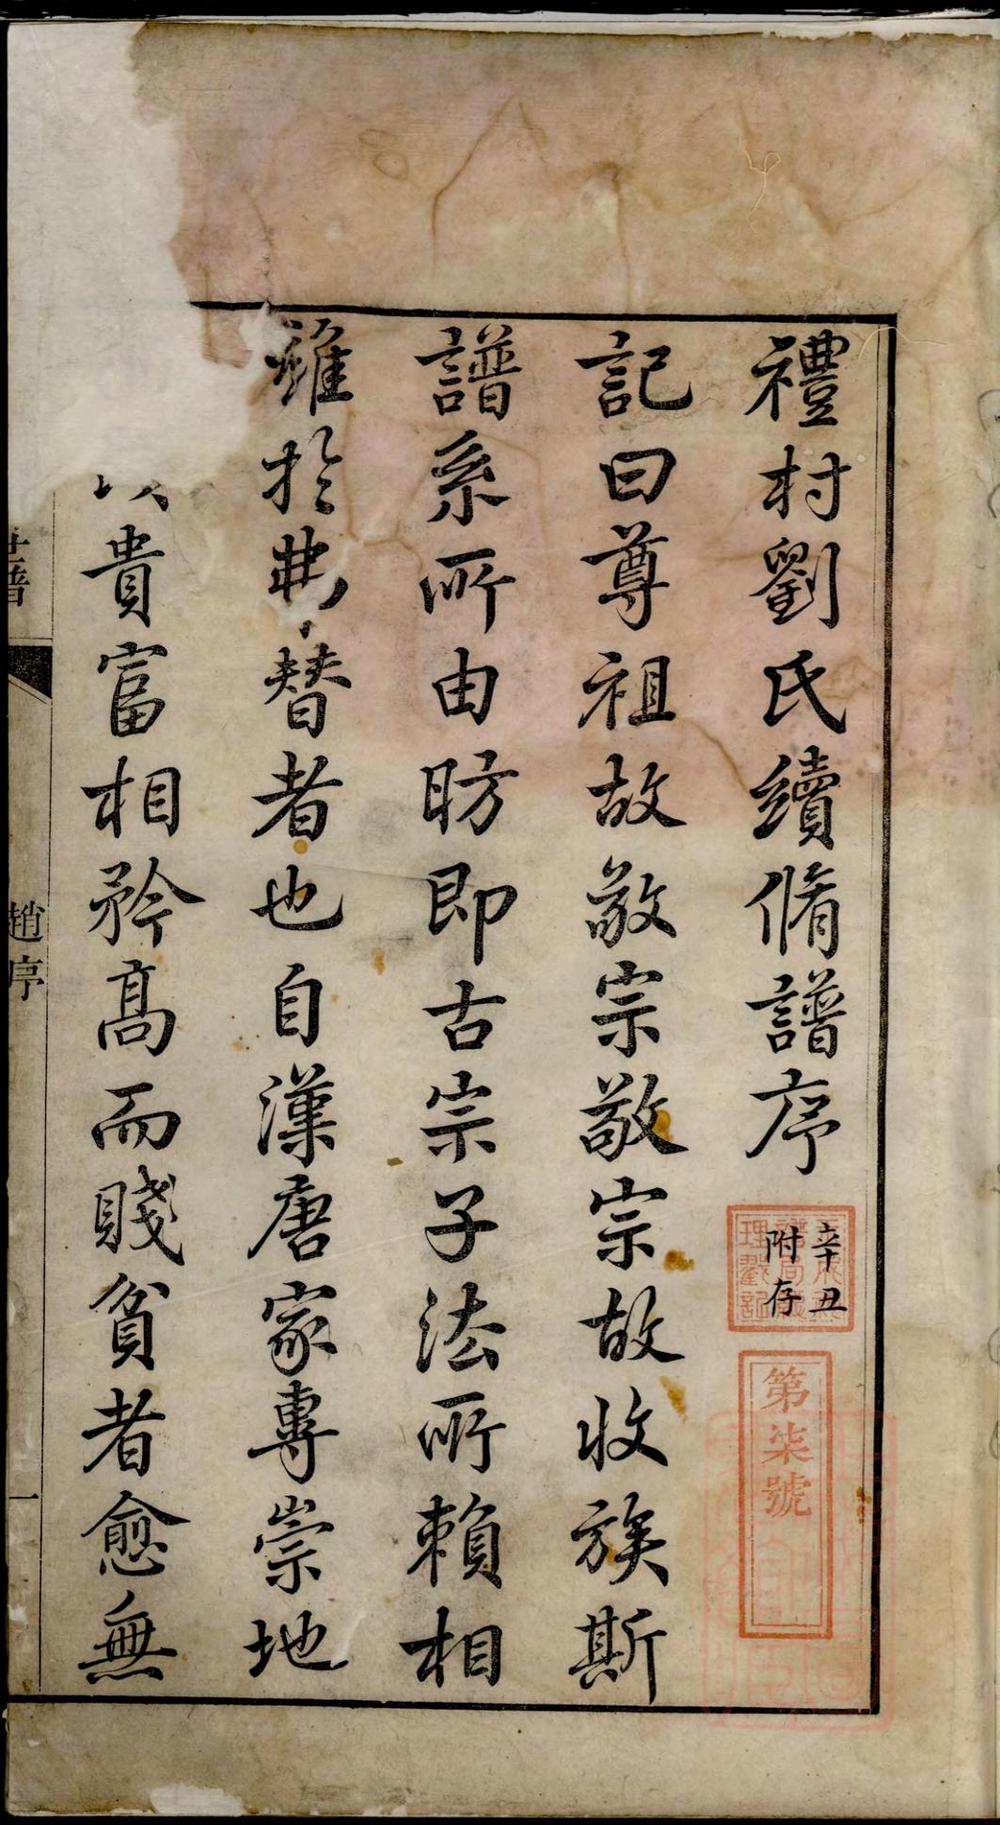 禮村劉氏續脩譜序
辛丑
附存
第柒號
記曰尊祖故敬宗敬宗故收族斯
譜系所由昉即古宗子法所賴相
維於弗替者也自漢唐家專崇地
貴富相矜高而賤貧者愈無
譜
趙序
一